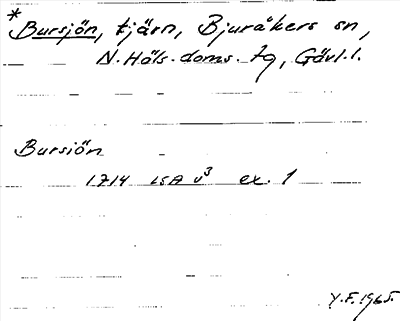 * Bursjön, tjärn, Bjuråkers sn,
N. Häls. doms. tg, Gävl. l.
Bursiön
1714 LSA v³ ex. 1
Y.F. 1965.